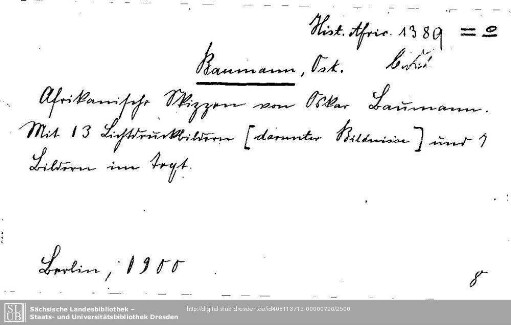 Hist. Afric. 1389 =
Baumann, Osk.
Afrikanische Skizzen von Oskar Baumann.
Mit 13 Lichtdruckbildern [darunter Bildnisse] und 9
Bildern im Text.
Berlin, 1900
8
Sächsische Landesbibliothek –
Staats- und Universitätsbibliothek Dresden